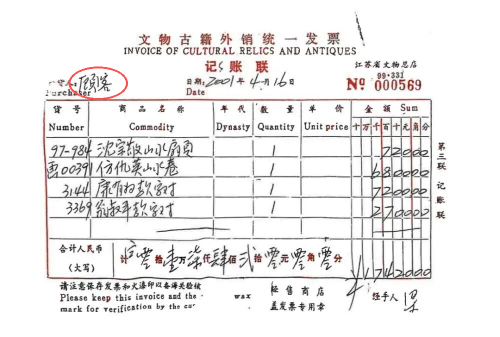 文物古籍外销统一发票
INVOICE OF CULTURAL RELICS AND ANTIQUES
记账联
江苏省文物总店
顾客
日期: 2001年4月16
99·331
Purchaser
Date
№ 000569
货号 商品名称 年代 数量 单价 金额 Sum
Number Commodity Dynasty Quantity Unit price 十万千百十元角分
97-984 沈宗敬山水扇 1 72000
00391 仿仇英山水卷 1 680000
3144 康有为款字对 1 720000
3369 翁叔平款字对 1 270000
第三联 记账联
合计人民币
(大写)
计 零拾壹万柒仟肆佰贰拾零元零角零分 1742000
请注意保存发票和火漆印以备海关检核 经售商店 经手人
Please keep this invoice and the wax 盖发票专用章
mark for verification by the